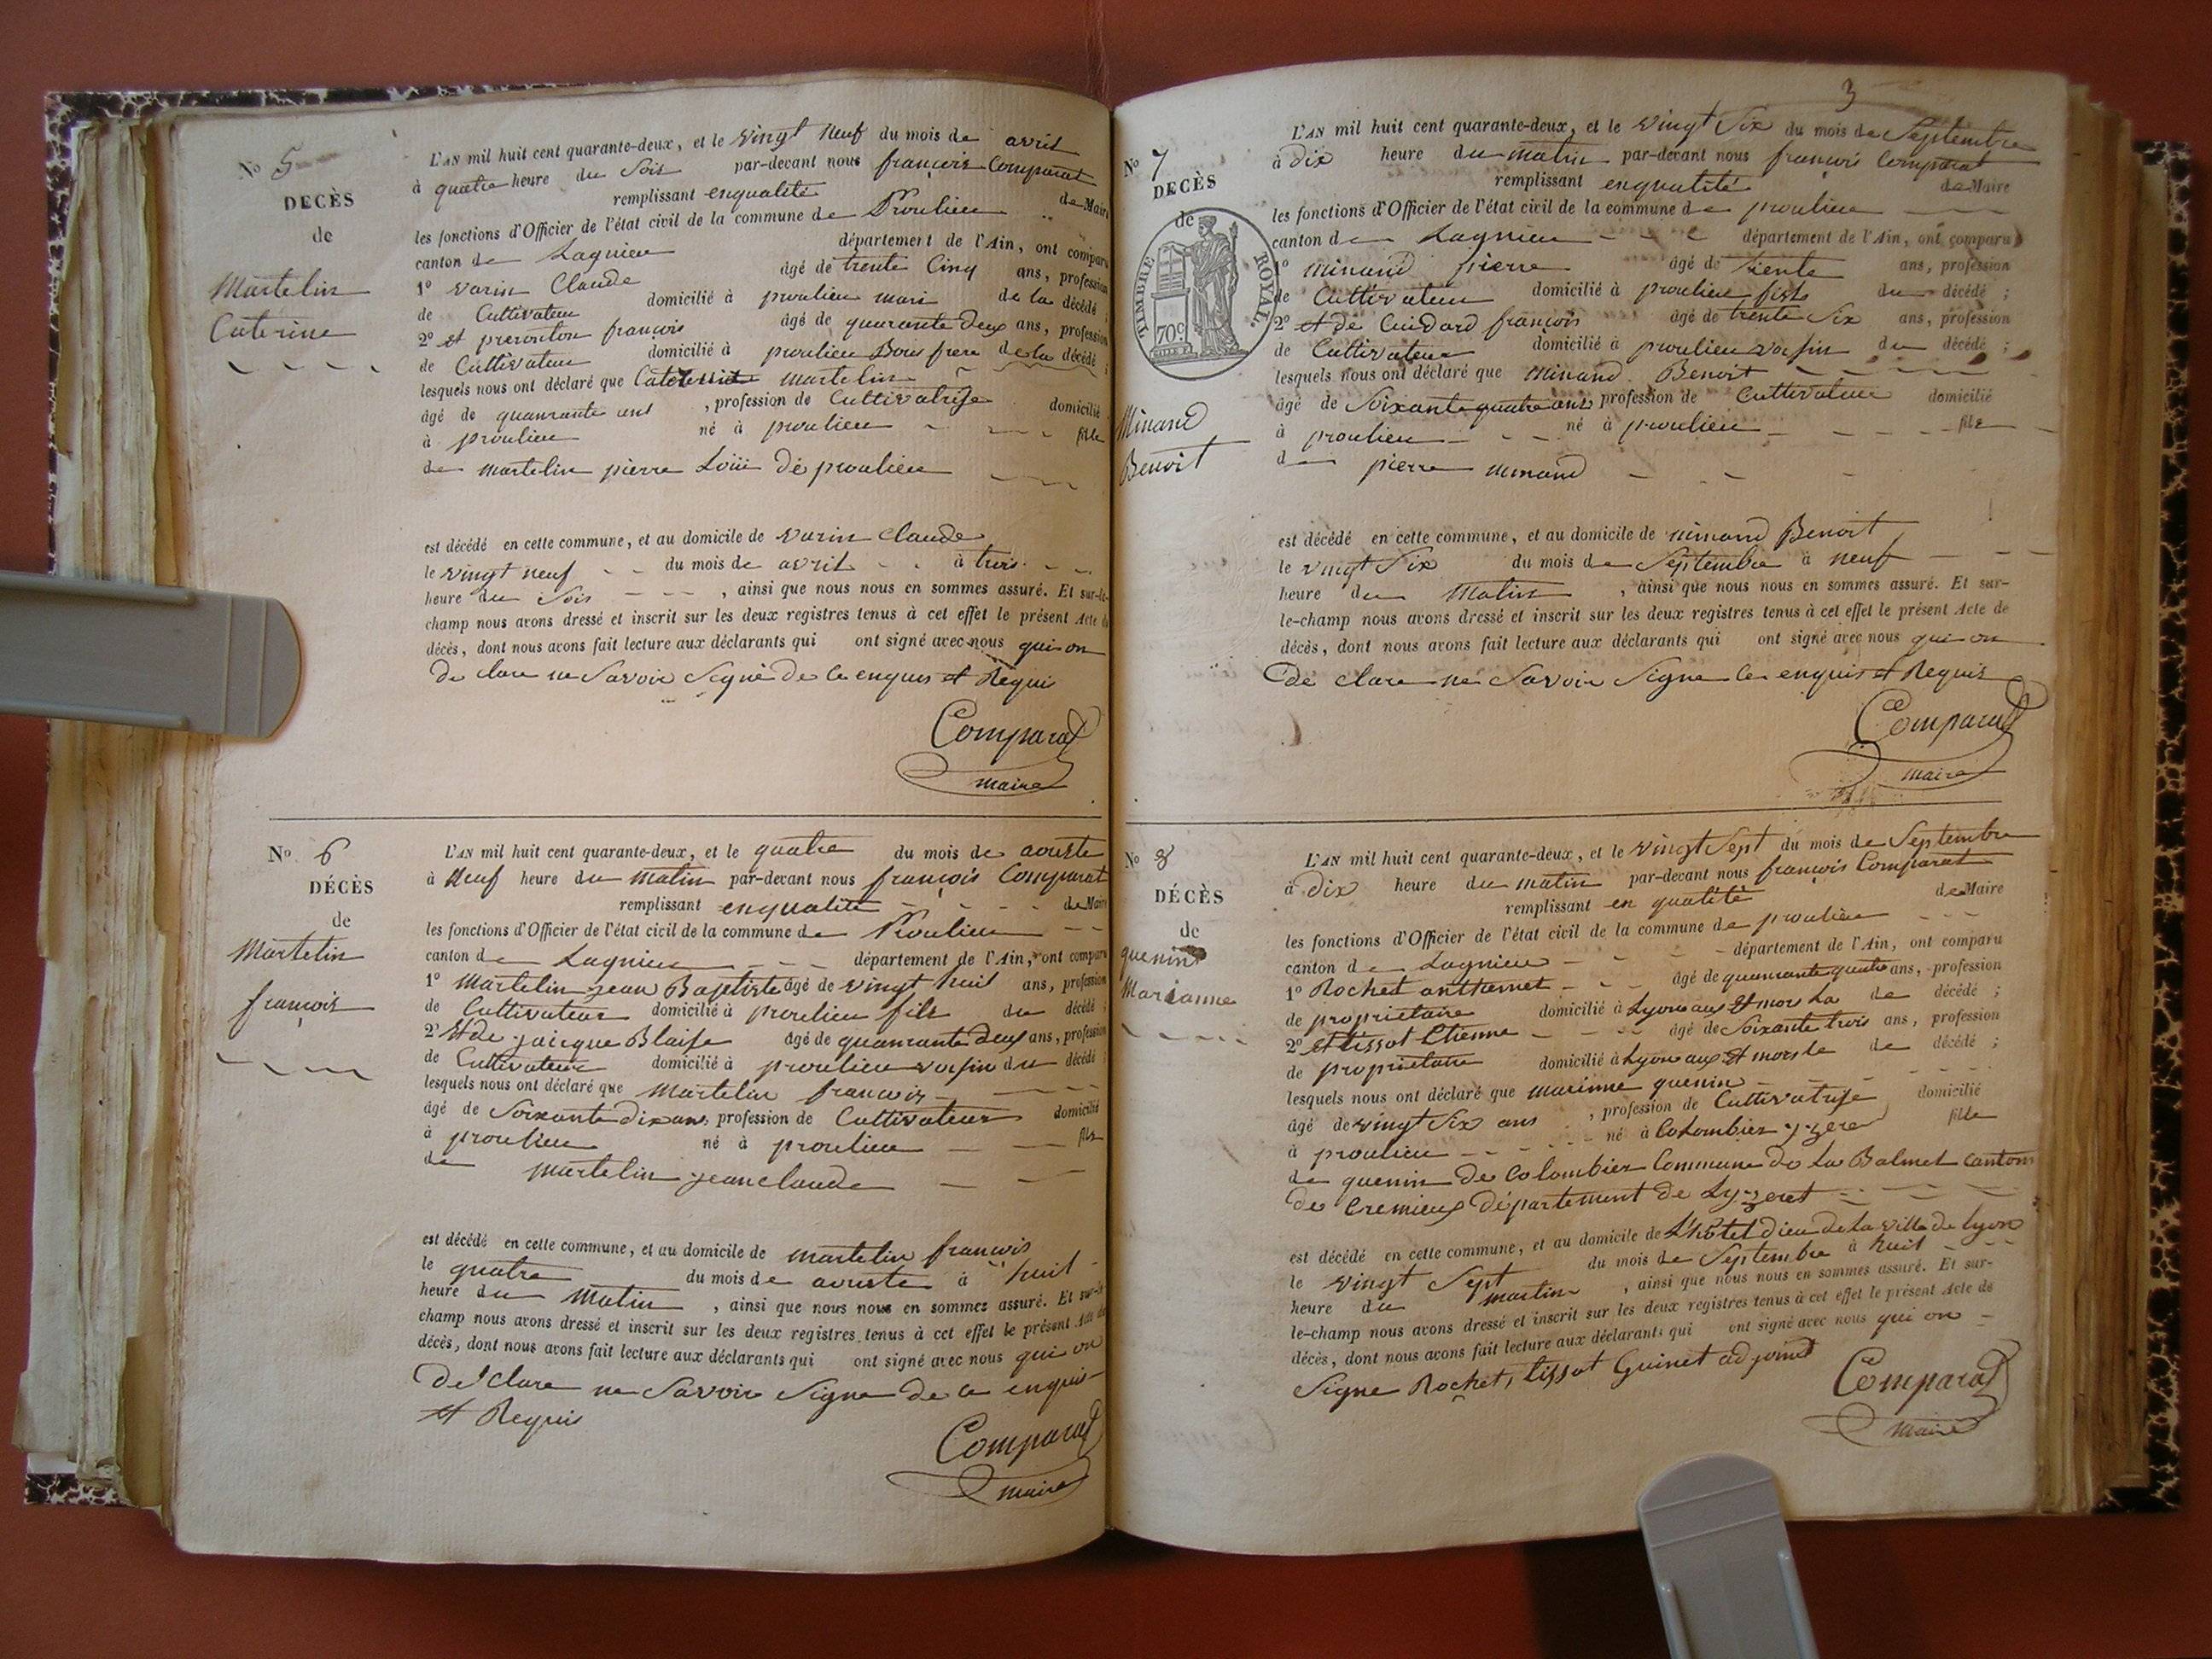 No 5
DECÈS
de
Martelin
Caterine
L'AN mil huit cent quarante-deux, et le vingt neuf du mois de avril
à quatre heure du Soir par-devant nous françois Comparat
remplissant enqualité de Maire
les fonctions d'Officier de l'état civil de la commune de Proulieu
canton de Lagnieu département de l'Ain, ont comparu
1º varin Claude âgé de trente Cinq ans, profession
de Cultivateur domicilié à proulieu mari de la décédé ;
2º et françois âgé de quarante deux ans, profession
de Cultivateur domicilié à proulieu Bous frere de la décédé ;
lesquels nous ont déclaré que martelin
âgé de quanrante ans , profession de Cultivatrise domicilié
à proulieu né à proulieu fille
de martelin pierre Loüi de proulieu
est décédé en cette commune, et au domicile de varin Claude
le vingt neuf du mois de avril à trois
heure du Soir , ainsi que nous nous en sommes assuré. Et sur-le-
champ nous avons dressé et inscrit sur les deux registres tenus à cet effet le présent Acte de
décès, dont nous avons fait lecture aux déclarants qui ont signé avec nous qui on
de clare ne Savoir Signé de ce enquis et Requis
Comparat
maire
No 6
DÉCÈS
de
Martelin
françois
L'AN mil huit cent quarante-deux, et le quatre du mois de aouste
à Neuf heure du matin par-devant nous françois Comparat
remplissant enqualité de Maire
les fonctions d'Officier de l'état civil de la commune de Proulieu
canton de Lagnieu département de l'Ain, ont comparu
1º Martelin jean Baptiste âgé de vingt huit ans, profession
de Cultivateur domicilié à proulieu fils du décédé ;
2º et de jaicque Blaise âgé de quanrante deux ans, profession
de Cultivateur domicilié à proulieu voisin du décédé ;
lesquels nous ont déclaré que Martelin françois
âgé de Soixante dix ans, profession de Cultivateur domicilié
à proulieu né à proulieu fils
de martelin jean claude
est décédé en cette commune, et au domicile de martelin françois
le quatre du mois de aouste à huit
heure du Matin , ainsi que nous nous en sommes assuré. Et sur-le-
champ nous avons dressé et inscrit sur les deux registres tenus à cet effet le présent Acte de
décès, dont nous avons fait lecture aux déclarants qui ont signé avec nous qui on
de clare ne Savoir Signe de ce enquis
et Requis
Comparat
maire
3
No 7
DECÈS
de
TIMBRE ROYAL.
70c.
Minand
Benoit
L'AN mil huit cent quarante-deux, et le vingt Six du mois de Septembre
à dix heure du matin par-devant nous françois Comparat
remplissant enqualité de Maire
les fonctions d'Officier de l'état civil de la commune de proulieu
canton de Lagnieu département de l'Ain, ont comparu
1º minand pierre âgé de trente ans, profession
de Cultivateur domicilié à proulieu fils du décédé ;
2º et de Cuidard françois âgé de trente Six ans, profession
de Cultivateur domicilié à proulieu voisin du décédé ;
lesquels nous ont déclaré que minand Benoit
âgé de Soixante quatre ans profession de Cultivateur domicilié
à proulieu né à proulieu fils
de pierre minand
est décédé en cette commune, et au domicile de minand Benoit
le vingt Six du mois de Septembre à neuf
heure du Matin , ainsi que nous nous en sommes assuré. Et sur-
le-champ nous avons dressé et inscrit sur les deux registres tenus à cet effet le présent Acte de
décès, dont nous avons fait lecture aux déclarants qui ont signé avec nous qui on
de clare ne Savoir Signe ce enquis et Requis
Comparat
maire
No 8
DÉCÈS
de
quenin
Marianne
L'AN mil huit cent quarante-deux, et le vingt Sept du mois de Septembre
à dix heure du matin par-devant nous françois Comparat
remplissant en qualité de Maire
les fonctions d'Officier de l'état civil de la commune de proulieu
canton de Lagnieu département de l'Ain, ont comparu
1º Rochet anthemet âgé de quanrante quatre ans, profession
de proprietaire domicilié à Lyon de décédé ;
2º et tissot Etienne âgé de Soixante trois ans, profession
de proprietaire domicilié à Lyon de décédé ;
lesquels nous ont déclaré que marinne quenin
âgé de vingt Six ans , profession de Cultivatrise domicilié
à proulieu né à Colombier yzere fille
de quenin de Colombier Commune de La Balmet canton
de Cremieux département de Lyzeret
est décédé en cette commune, et au domicile de L'hôtel dieu de la ville de lyon
le vingt Sept du mois de Septembre à huit
heure du martin , ainsi que nous nous en sommes assuré. Et sur-
le-champ nous avons dressé et inscrit sur les deux registres tenus à cet effet le présent Acte de
décès, dont nous avons fait lecture aux déclarants qui ont signé avec nous qui on
Signe Rochet, tissot Guinet adjoint
Comparat
maire